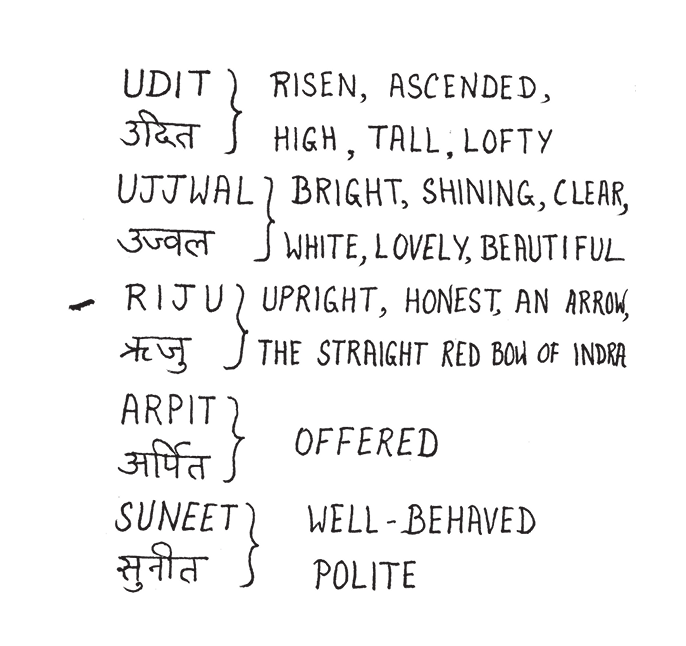 UDIT } RISEN, ASCENDED,
उदित HIGH, TALL, LOFTY
UJJWAL } BRIGHT, SHINING, CLEAR,
उज्वल WHITE, LOVELY, BEAUTIFUL
- RIJU } UPRIGHT, HONEST, AN ARROW,
ऋजु THE STRAIGHT RED BOW OF INDRA
ARPIT }
अर्पित OFFERED
SUNEET } WELL-BEHAVED
सुनीत POLITE